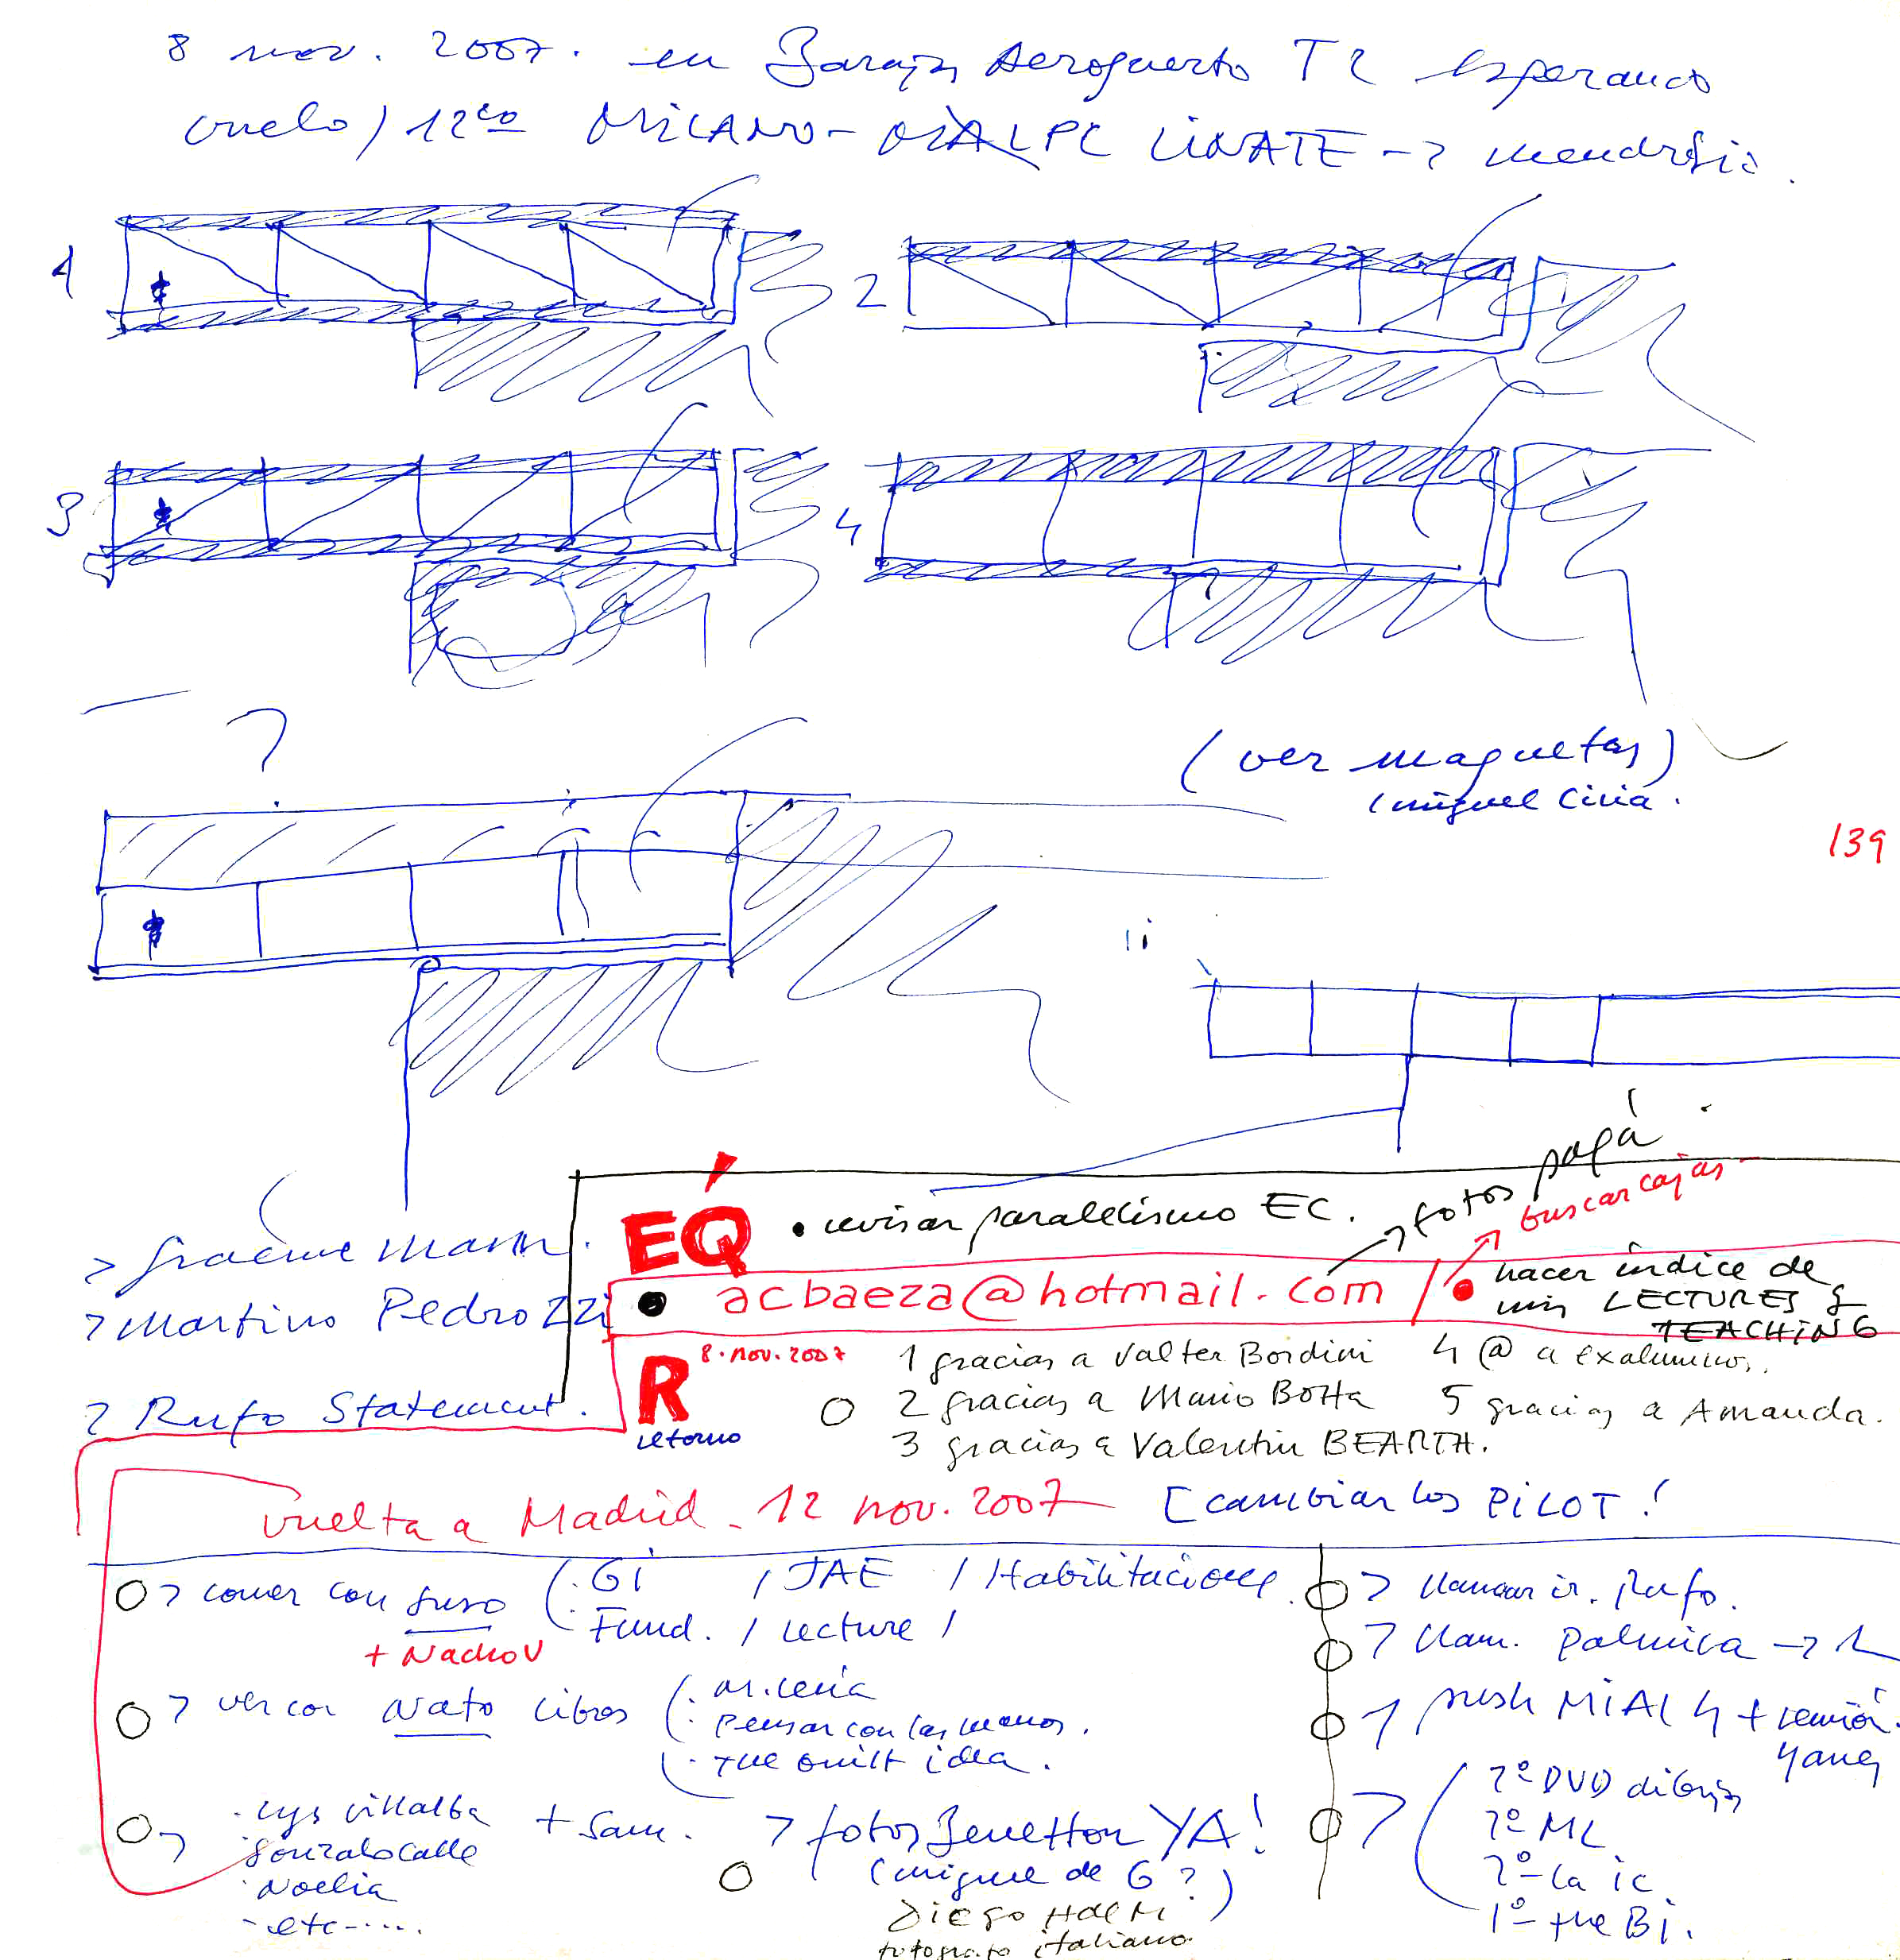 8 nov. 2007. en Barajas Aeropuerto T2 esperando
vuelo / 12:00 MILANO - MALPE LINATE -> Mendrisio.
1
2
3
4
?
(ver maquetas)
(Miguel Ciria.
139
> Graeme Mann.
> Martino Pedrozzi
> Rufo Statement.
EQ
• revisar paralelismo EC.
fotos papá
buscar cajas
• acbaeza@hotmail.com /
• hacer índice de
mis LECTURES &
TEACHING
R
retorno
8. nov. 2007
1 gracias a Valter Bordini
2 gracias a Mario Botta
3 gracias a Valentin BEARTH.
4 @ a exalumnos.
5 gracias a Amanda.
vuelta a Madrid - 12 nov. 2007
[cambiar los PILOT!
> comer con Suso (. GI / JAE / Habilitaciones.
. Fund. / Lecture /
+ Nacho V
> ver con Nato libros (
. Pensar con las manos.
. The Built idea.
> . Lys Villalba + Sam.
. Gonzalo Calle
. Noelia
- etc.....
> fotos Benetton YA!
(Miguel de G?)
Diego
fotografo italiano
> llamar ir. Rufo.
> llam. Palmira -> 1
> push MIAC 4 + reunión.
Yanes
> ( 2º DVD dibujos
2º ML
2º - La ic
1º - the Bi.